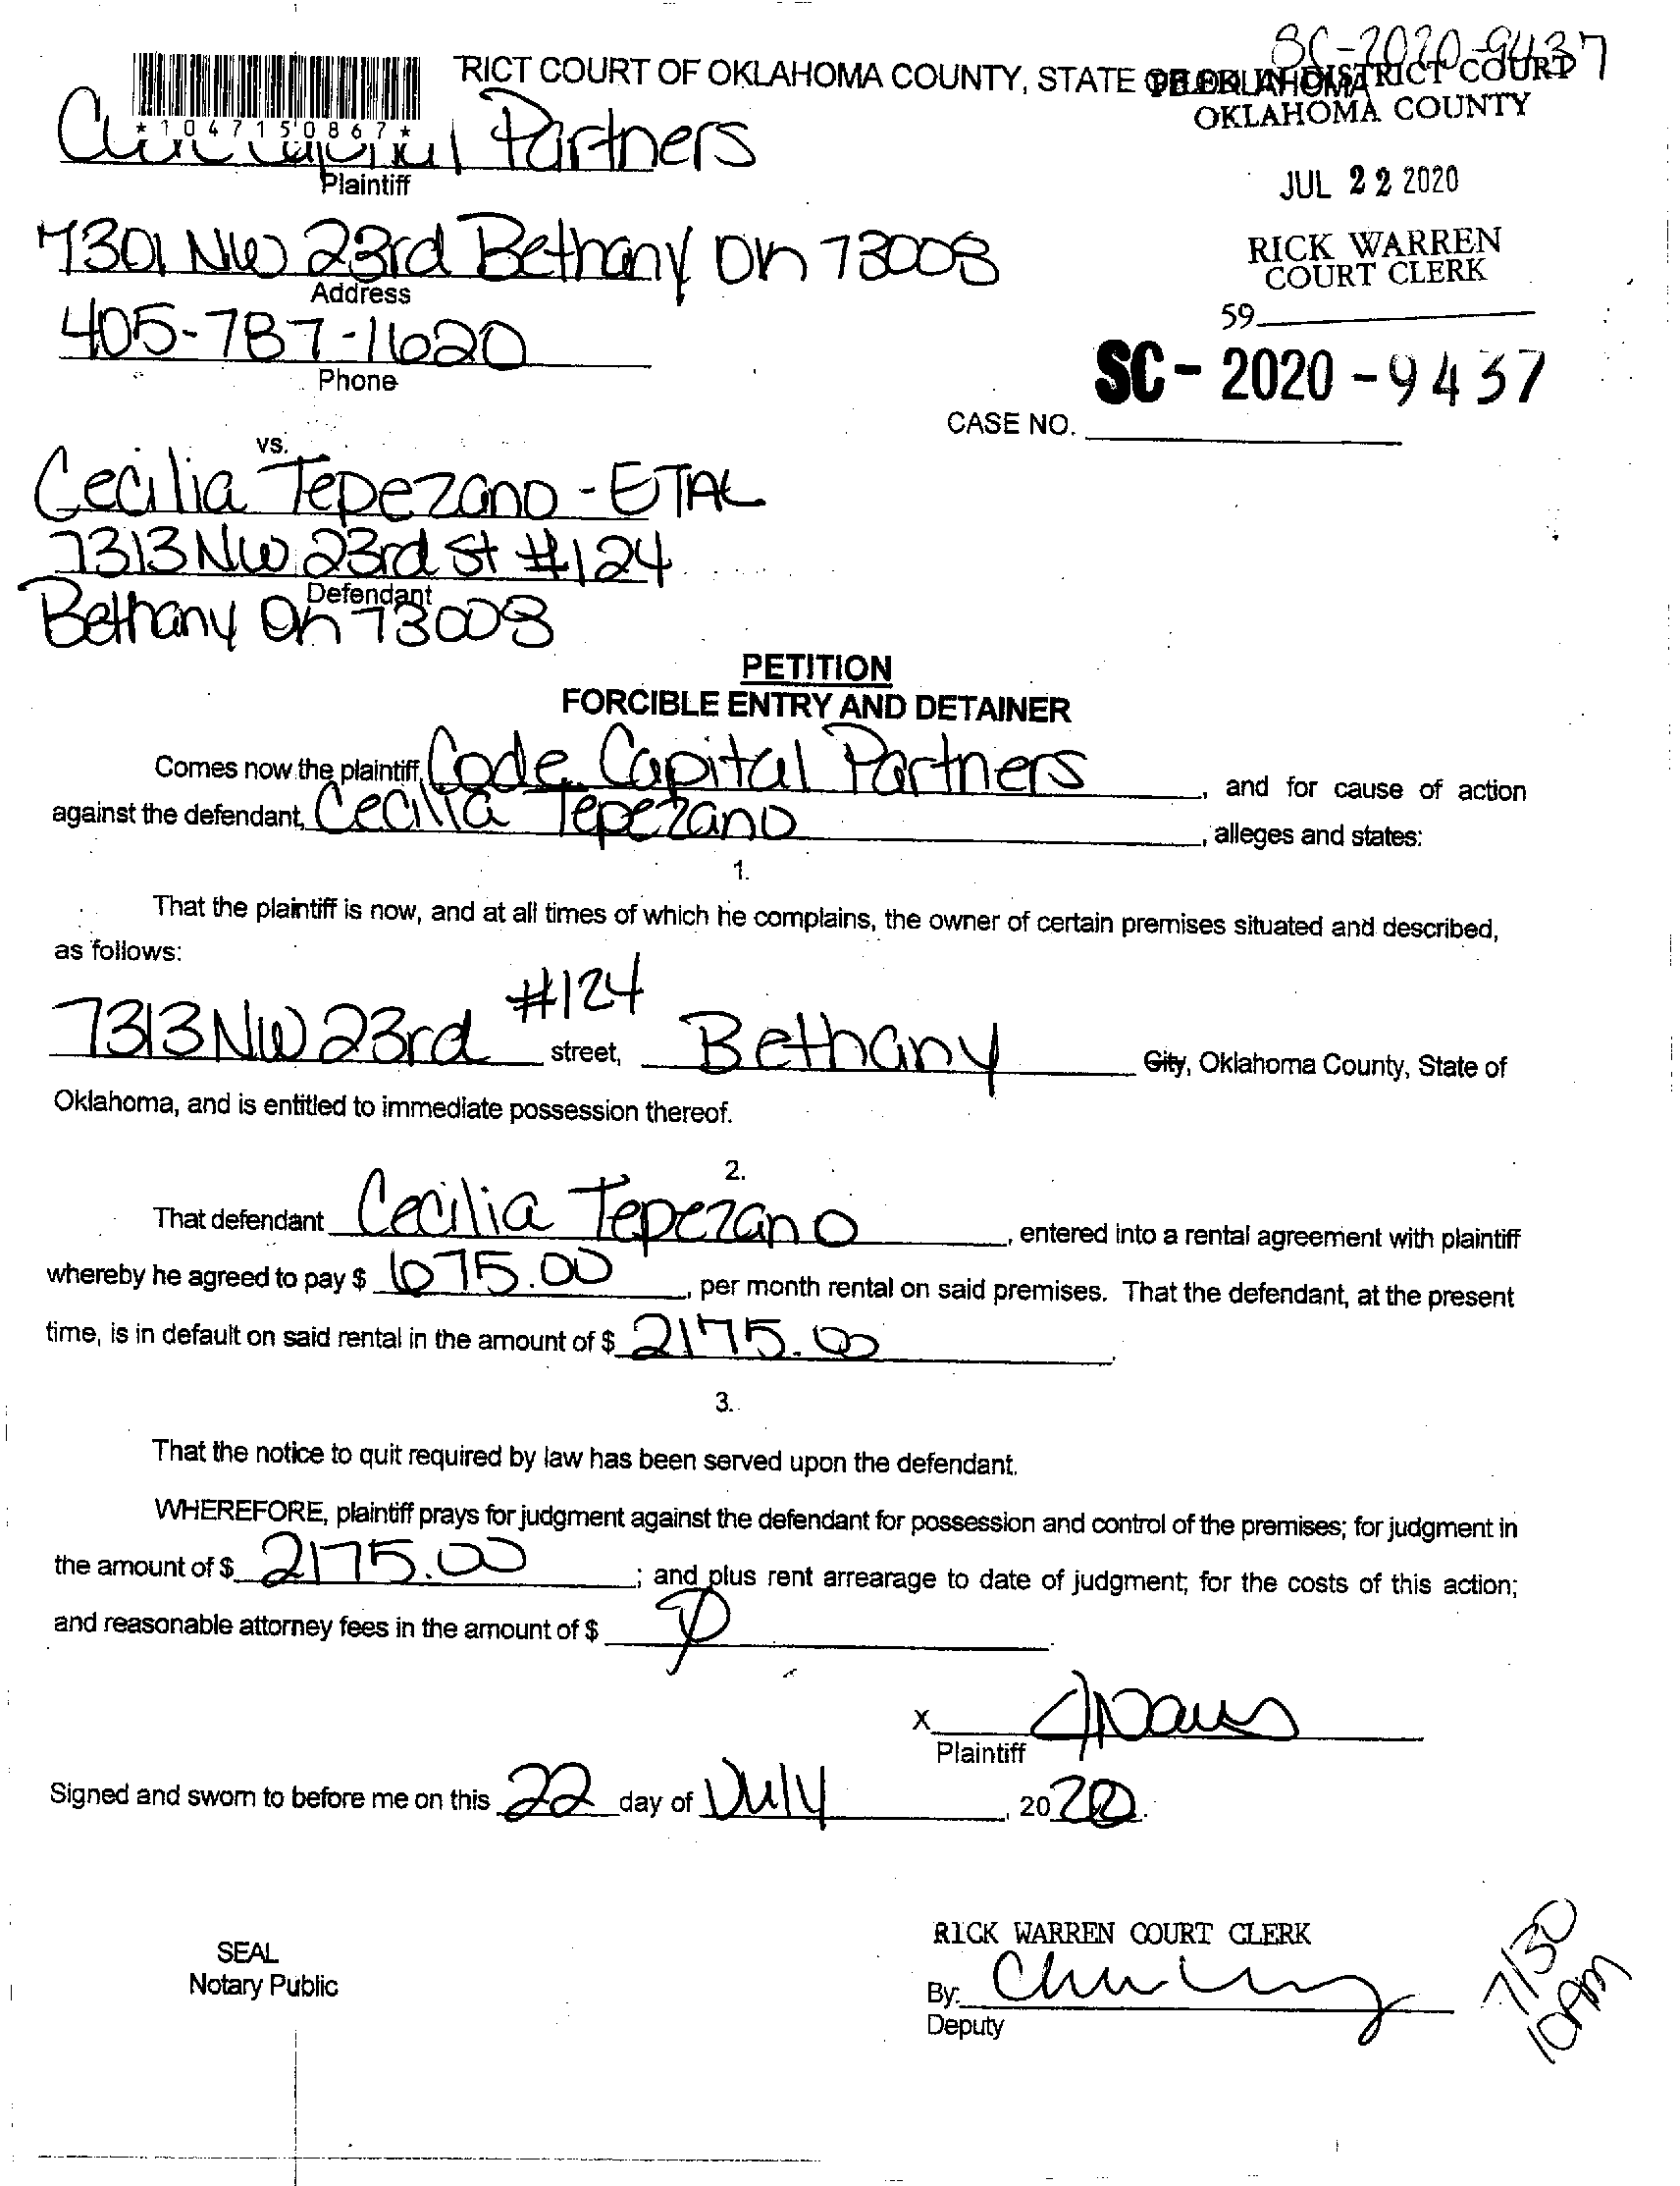 SC-2020-9437
RICT COURT OF OKLAHOMA COUNTY, STATE OF OKLAHOMA
FILED IN DISTRICT COURT
OKLAHOMA COUNTY
*1047150867*
Capital Partners
Plaintiff
JUL 22 2020
7301 NW 23rd Bethany OK 73008
Address
RICK WARREN
COURT CLERK
405-787-1620
Phone
59
SC-2020-9437
CASE NO.
vs.
Cecilia Tepezano - ETAL
7313 NW 23rd St #124
Defendant
Bethany OK 73008
PETITION
FORCIBLE ENTRY AND DETAINER
Comes now the plaintiff, Code Capital Partners, and for cause of action
against the defendant, Cecilia Tepezano, alleges and states:
1.
That the plaintiff is now, and at all times of which he complains, the owner of certain premises situated and described,
as follows:
7313 NW 23rd #124 street, Bethany City, Oklahoma County, State of
Oklahoma, and is entitled to immediate possession thereof.
2.
That defendant Cecilia Tepezano, entered into a rental agreement with plaintiff
whereby he agreed to pay $ 675.00, per month rental on said premises. That the defendant, at the present
time, is in default on said rental in the amount of $ 2175.00.
3.
That the notice to quit required by law has been served upon the defendant.
WHEREFORE, plaintiff prays for judgment against the defendant for possession and control of the premises; for judgment in
the amount of $ 2175.00; and plus rent arrearage to date of judgment; for the costs of this action;
and reasonable attorney fees in the amount of $
X
Plaintiff
Signed and sworn to before me on this 22 day of July, 2020.
RICK WARREN COURT CLERK
SEAL
Notary Public
By:
Deputy
7/30
10AM